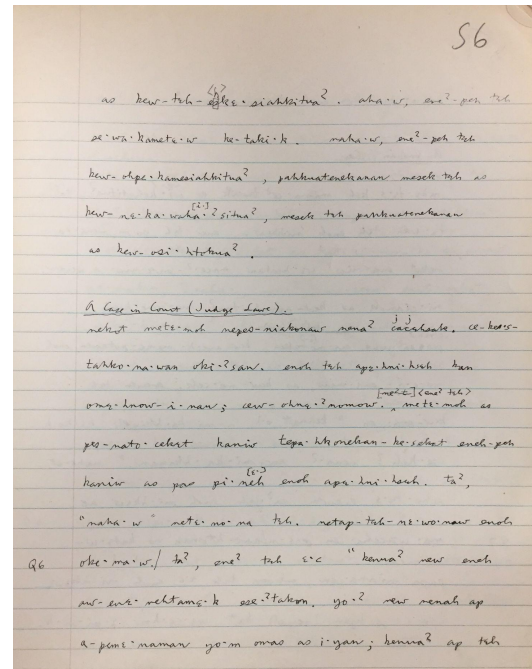 S6
as kew-teh-eskɛ·siahkitua². aha·w, ene²-peh teh
se·wa·kamete·w ke-taki·k. naha·w, ene²-peh teh
kew-ohpe·kamesiahkitua², pahkuatenekanan mesek teh as
kew-nɛ·ka·waha·²situa², mesek teh pahkuatenekanan
[2·]
as kew-osi·htokua².
A Case in Court (Judge Law).
nekot metɛ·moh neqes-niakonaw nena² cacahsak. ce-kews-
j j
tahko·na·wan oki·²san. enoh teh apɛ·hni·hseh kan
[me²-c] <ene² teh>
omɛ·hnow-i·nan; cew-ohnɛ·²nomow. ^ metɛ·moh as
pes-nato·cekset kaniw tepa·hkonekan-ke·seket eneh-poh
[ɛ·]
kaniw as pas pi·neh enoh apɛ·hni·hseh. ta²,
"naha·w" netɛ·no·na teh. netap-teh-nɛ·wo·naw enoh
Q6 oke·ma·w./ ta², ene² teh ɛ·c "kenna² new eneh
aw-enɛ·nehtamɛ·k ese·²takon. yo·² new nenah ap
a-peme·naman yo·m omas as i·yan; kenna² ap teh